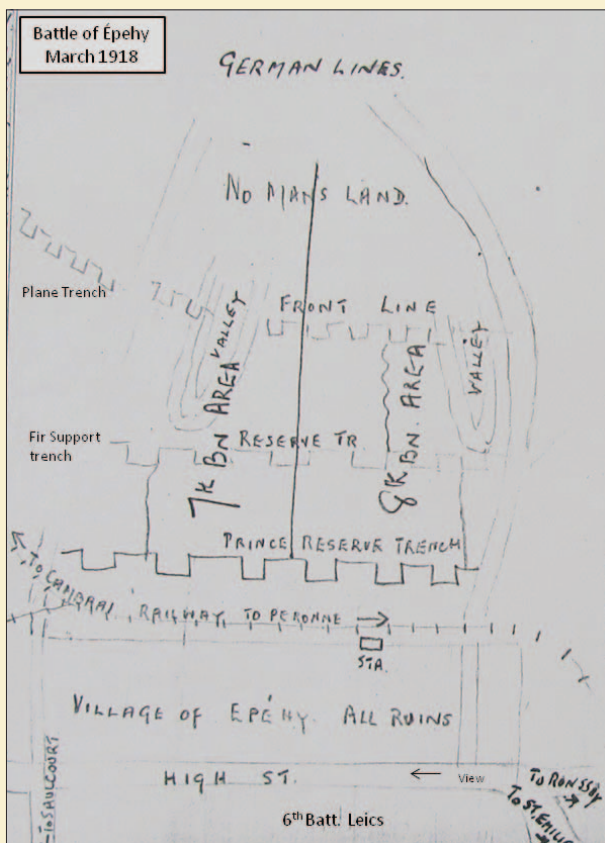 Battle of Épehy
March 1918
GERMAN LINES.
NO MANS LAND.
Plane Trench
FRONT LINE
VALLEY
VALLEY
7th BN AREA
8th BN. AREA
Fir Support
trench
RESERVE TR.
PRINCE RESERVE TRENCH
TO CAMBRAI
RAILWAY TO PERONNE
STA.
VILLAGE OF EPÉHY. ALL RUINS
TO SAULCOURT
HIGH ST.
View
TO RONSSOY
TO ST. EMILIE
6th Batt. Leics